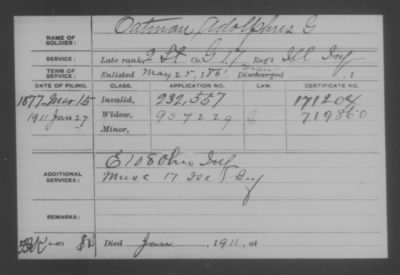 Oatman, Adolphus G
NAME OF SOLDIER:
SERVICE: Late rank, 2 Lt. Co. G 17 Reg't Ill Inf
TERM OF SERVICE: Enlisted May 25, 1861 Discharged , 1
DATE OF FILING. CLASS. APPLICATION NO. LAW. CERTIFICATE NO.
1877 Mar 15 Invalid, 232,557 171204
1911 Jan 27 Widow, 957229 719860
Minor,
ADDITIONAL SERVICES: E 108 Ohio Inf
Musc 17 Ill Inf
REMARKS:
Died Jan , 1911, at